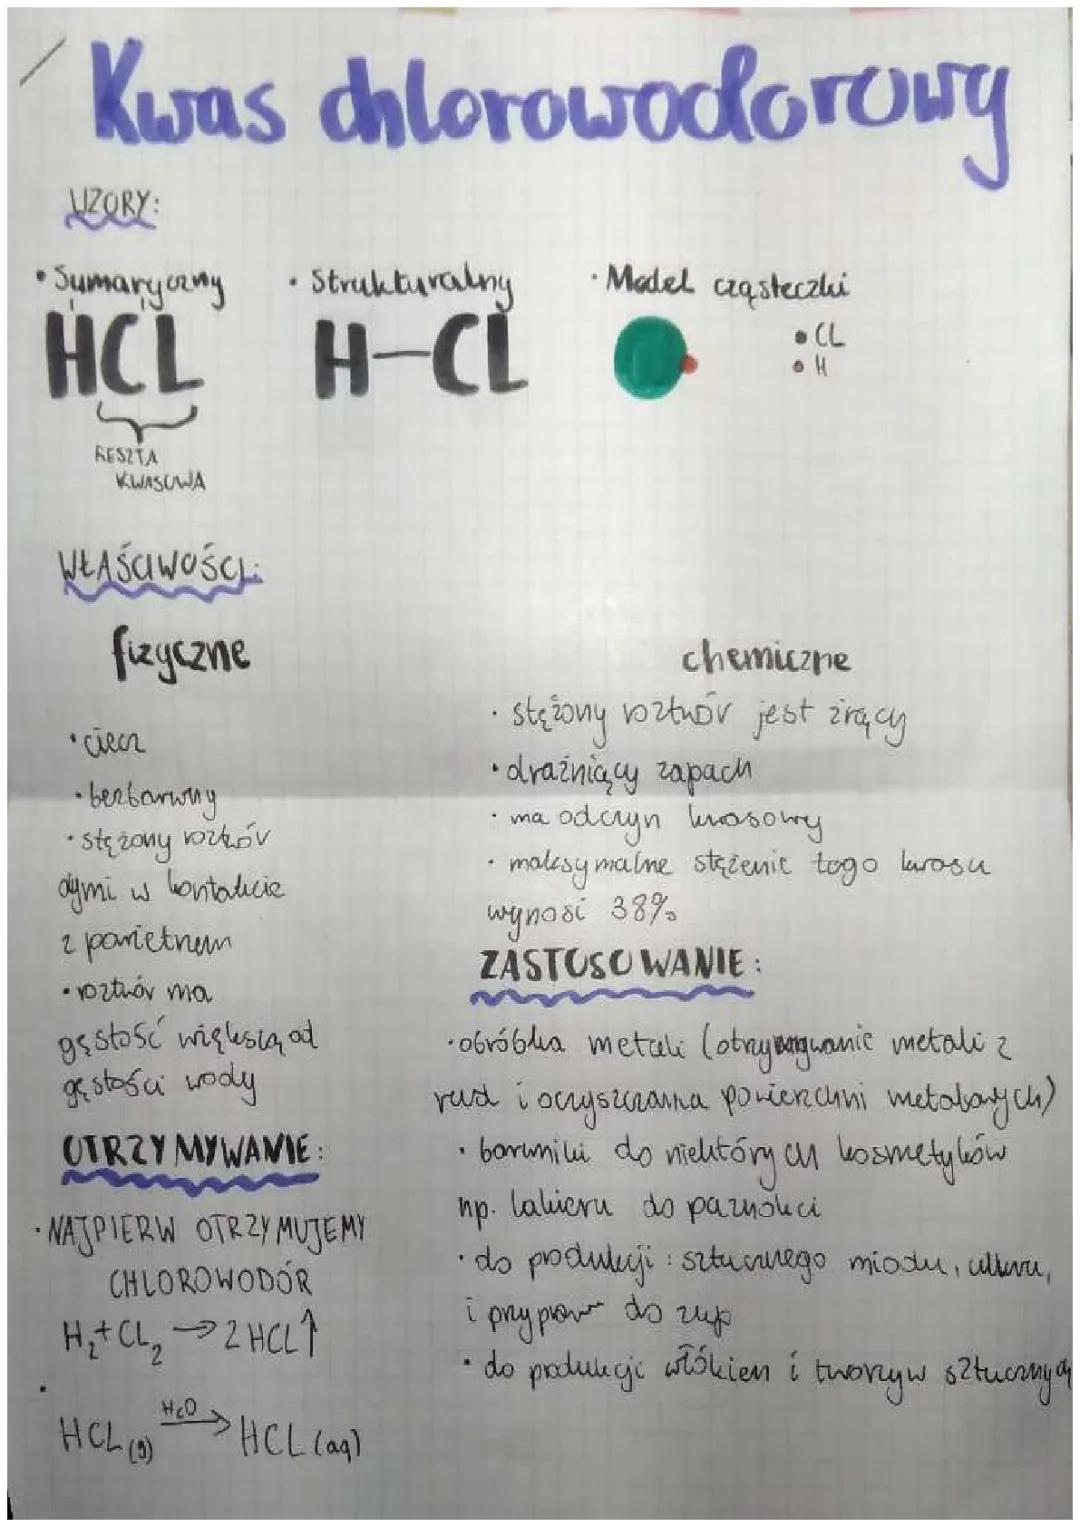 Kwas chlorowodorowy
WZORY:
• Sumaryczny
HCL
RESZTA
KWASOWA
• Strukturalny
H-CL
• Model cząsteczki
• CL
• H
WŁAŚCIWOŚCI:
fizyczne
• ciecz
• bezbarwny
• stężony roztwór
dymi w kontakcie
z powietrzem
• roztwór ma
gęstość większą od
gęstości wody
OTRZYMYWANIE:
• NAJPIERW OTRZYMUJEMY
CHLOROWODÓR
H₂+CL₂ → 2HCL↑
•
HCL(g) H₂O→ HCL(aq)
chemiczne
• stężony roztwór jest żrący
• drażniący zapach
• ma odczyn kwasowy
• maksymalne stężenie tego kwasu
wynosi 38%
ZASTOSOWANIE:
• obróbka metali (otrzymywanie metali z
rud i oczyszczania powierzchni metalowych)
• barwniki do niektórych kosmetyków
np. lakieru do paznokci
• do produkcji: sztucznego miodu, cukru,
i przypraw do zup
• do produkcji włókien i tworzyw sztucznych